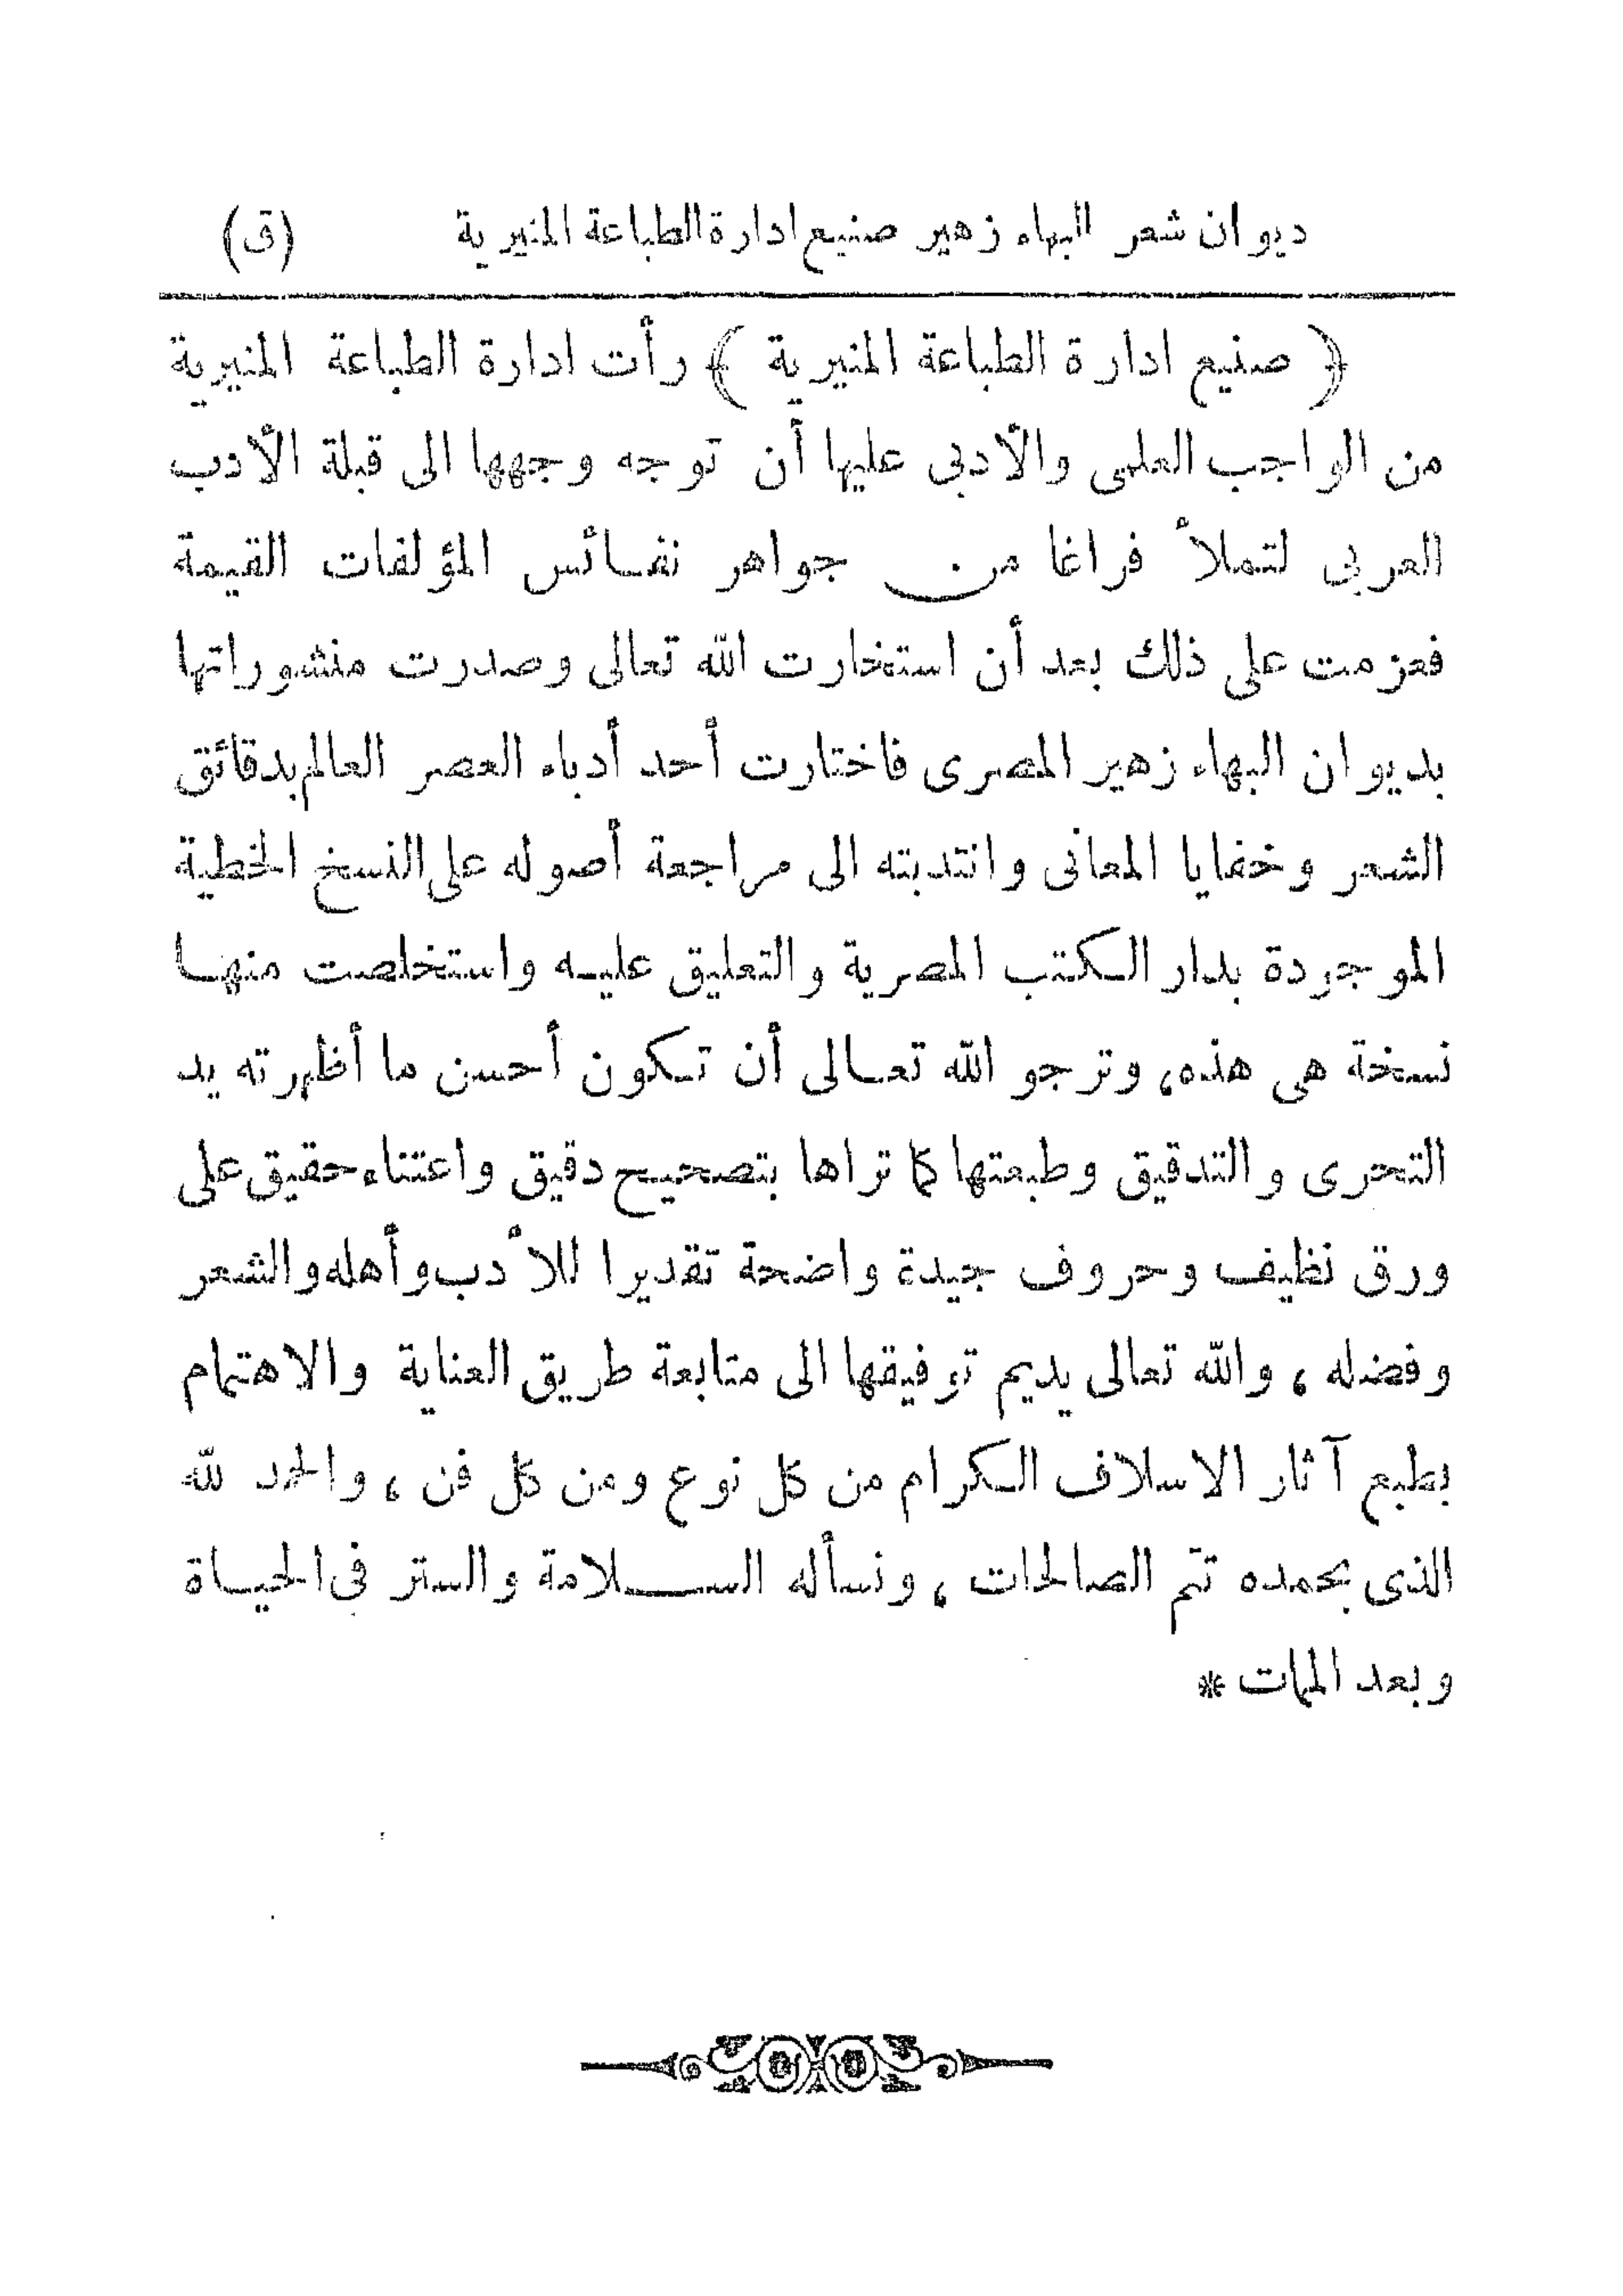 ديوان شعر البهاء زهير صنيع ادارة الطباعة المنيرية (ق)
﴿ صنيع ادارة الطباعة المنيرية ﴾ رأت ادارة الطباعة المنيرية
من الواجب العلمى والأدبى عليها أن توجه وجهها الى قبلة الأدب
العربى لتملأ فراغا من جواهر نفائس المؤلفات القيمة
فعزمت على ذلك بعد أن استخارت الله تعالى وصدرت منشوراتها
بديوان البهاء زهير المصرى فاختارت أحد أدباء العصر العالم بدقائق
الشعر وخفايا المعانى وانتدبته الى مراجعة أصوله على النسخ الخطية
الموجودة بدار الكتب المصرية والتعليق عليه واستخلصت منها
نسخة هى هذه، وترجو الله تعالى أن تكون أحسن ما أظهرته يد
التحرى والتدقيق وطبعتها كما تراها بتصحيح دقيق واعتناء حقيق على
ورق نظيف وحروف جيدة واضحة تقديرا للأدب وأهله والشعر
وفضله ، والله تعالى يديم توفيقها الى متابعة طريق العناية والاهتمام
بطبع آثار الاسلاف الكرام من كل نوع ومن كل فن ، والحمد لله
الذى بحمده تتم الصالحات ، ونسأله السلامة والستر فى الحياة
وبعد الممات *